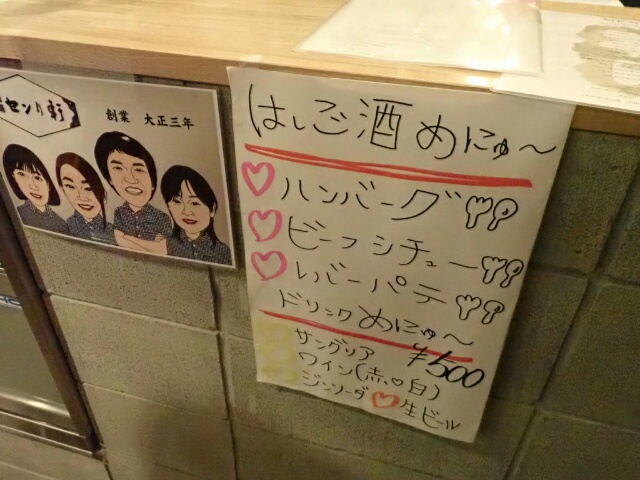 センリ軒
創業 大正三年
はしご酒めにゅ〜
ハンバーグ
ビーフシチュー
レバーパテ
ドリンクめにゅ〜
サングリア ¥500
ワイン(赤○白)
ジンソーダ 生ビール